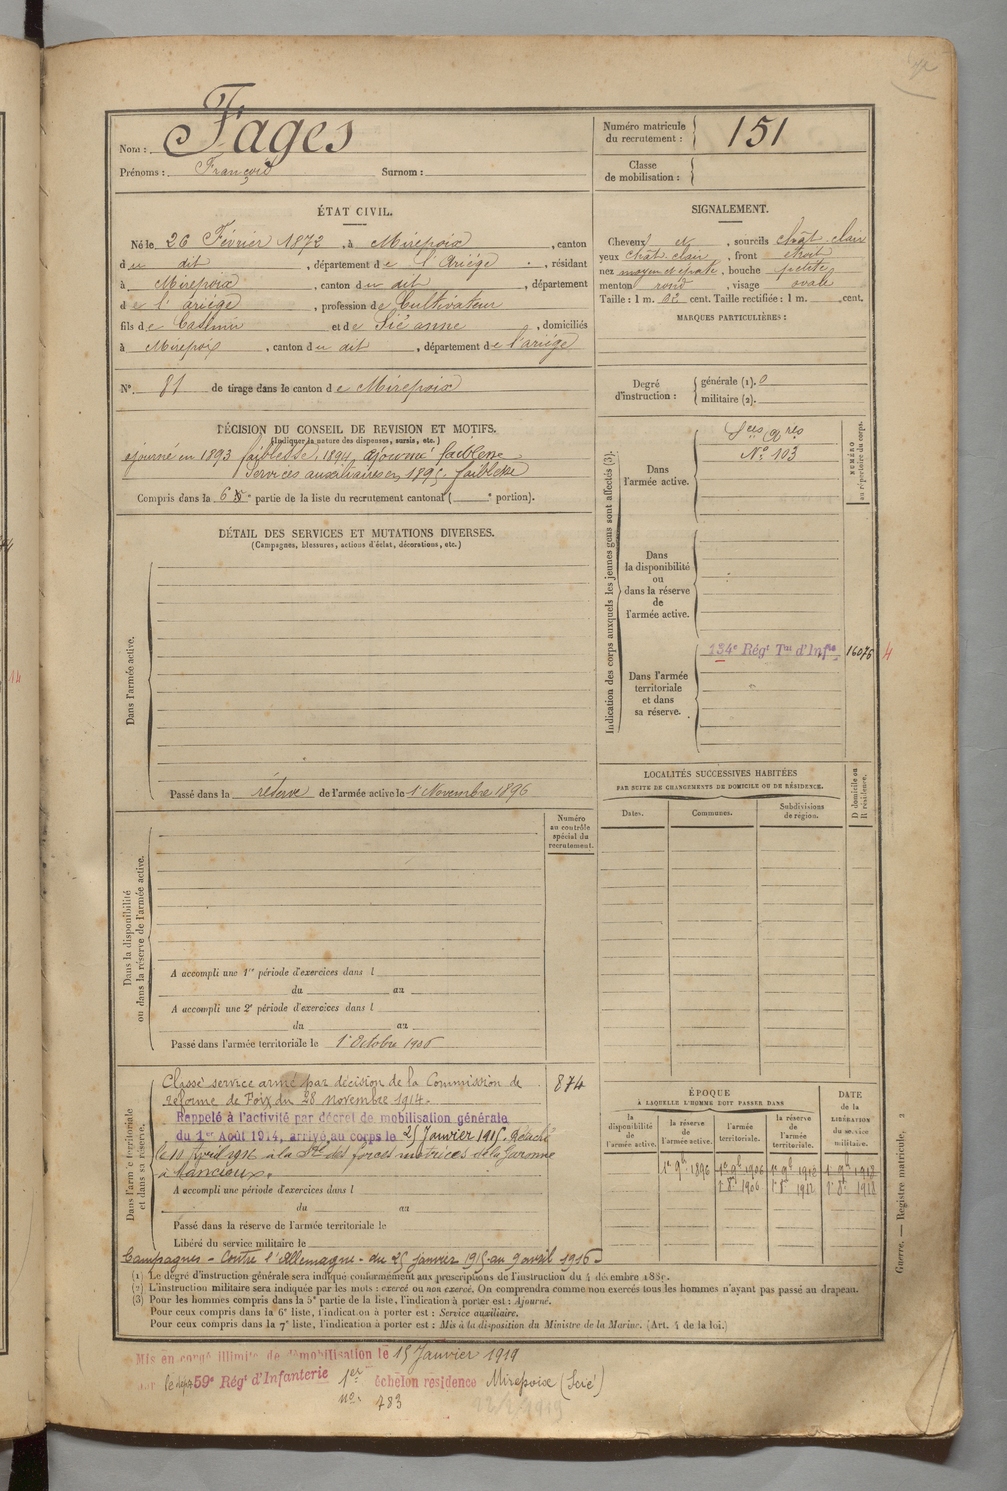 Nom : Fages
Prénoms : François Surnom :
Numéro matricule du recrutement : 151
Classe de mobilisation :
ÉTAT CIVIL.
Né le 26 Février 1872, à Mirepoix, canton
du dit, département de l'Ariége, résidant
à Mirepoix, canton du dit, département
de l'ariége, profession de Cultivateur
fils de Casimir et de Sié anne, domiciliés
à Mirepoix, canton du dit, département de l'ariége
N° 81 de tirage dans le canton de Mirepoix
SIGNALEMENT.
Cheveux et, sourcils chât. clair
yeux chât. clair, front étroit
nez moyen et épaté, bouche petite
menton rond, visage ovale
Taille : 1 m. cent. Taille rectifiée : 1 m. cent.
MARQUES PARTICULIÈRES :
Degré d'instruction :
générale (1). 0
militaire (2).
DÉCISION DU CONSEIL DE REVISION ET MOTIFS.
(Indiquer la nature des dispenses, sursis, etc.)
ajourné en 1893 faiblesse, 1894, ajourné faiblesse
Services auxiliaires en 1895 faiblesse
Compris dans la 6e partie de la liste du recrutement cantonal ( e portion).
Indication des corps auxquels les jeunes gens sont affectés (3).
NUMÉRO au répertoire du corps.
Dans l'armée active.
N° 103
Dans la disponibilité ou dans la réserve de l'armée active.
Dans l'armée territoriale et dans sa réserve.
134e Régt Tal d'Infie 16076 4
DÉTAIL DES SERVICES ET MUTATIONS DIVERSES.
(Campagnes, blessures, actions d'éclat, décorations, etc.)
Dans l'armée active.
Passé dans la réserve de l'armée active le 1 Novembre 1896
Numéro au contrôle spécial du recrutement.
Dans la disponibilité ou dans la réserve de l'armée active.
A accompli une 1re période d'exercices dans l
du au
A accompli une 2e période d'exercices dans l
du au
Passé dans l'armée territoriale le 1er Octobre 1906
LOCALITÉS SUCCESSIVES HABITÉES
PAR SUITE DE CHANGEMENTS DE DOMICILE OU DE RÉSIDENCE.
D domicile ou R résidence.
Dates. Communes. Subdivisions de région.
Dans l'armée territoriale et dans sa réserve.
Classé service armé par décision de la Commission de 874
réforme de Foix du 28 novembre 1914.
Rappelé à l'activité par décret de mobilisation générale
du 1er Août 1914, arrivé au corps le 25 Janvier 1915. Détaché
le 10 Avril 1916 à la Sté des forces motrices de la Garonne
à Mancioux.
A accompli une période d'exercices dans l
du au
Passé dans la réserve de l'armée territoriale le
Libéré du service militaire le
Campagnes - Contre l'Allemagne - du 25 janvier 1915 au 9 avril 1916
ÉPOQUE
À LAQUELLE L'HOMME DOIT PASSER DANS
la disponibilité de l'armée active.
la réserve de l'armée active.
l'armée territoriale.
la réserve de l'armée territoriale.
DATE de la LIBÉRATION du service militaire.
1er 9b 1896 1er 9b 1906 1er 9b 1912 1er 9b 1918
1er 8b 1906 1er 8b 1912 1er 8b 1918
(1) Le degré d'instruction générale sera indiqué conformément aux prescriptions de l'instruction du 4 décembre 1889.
(2) L'instruction militaire sera indiquée par les mots : exercé ou non exercé. On comprendra comme non exercés tous les hommes n'ayant pas passé au drapeau.
(3) Pour les hommes compris dans la 5e partie de la liste, l'indication à porter est : Ajourné.
Pour ceux compris dans la 6e liste, l'indication à porter est : Service auxiliaire.
Pour ceux compris dans la 7e liste, l'indication à porter est : Mis à la disposition du Ministre de la Marine. (Art. 4 de la loi.)
Guerre. — Registre matricule. 2
Mis en congé illimité de démobilisation le 15 Janvier 1919
par le dépôt 59e Régt d'Infanterie 1er échelon résidence Mirepoix
no 783